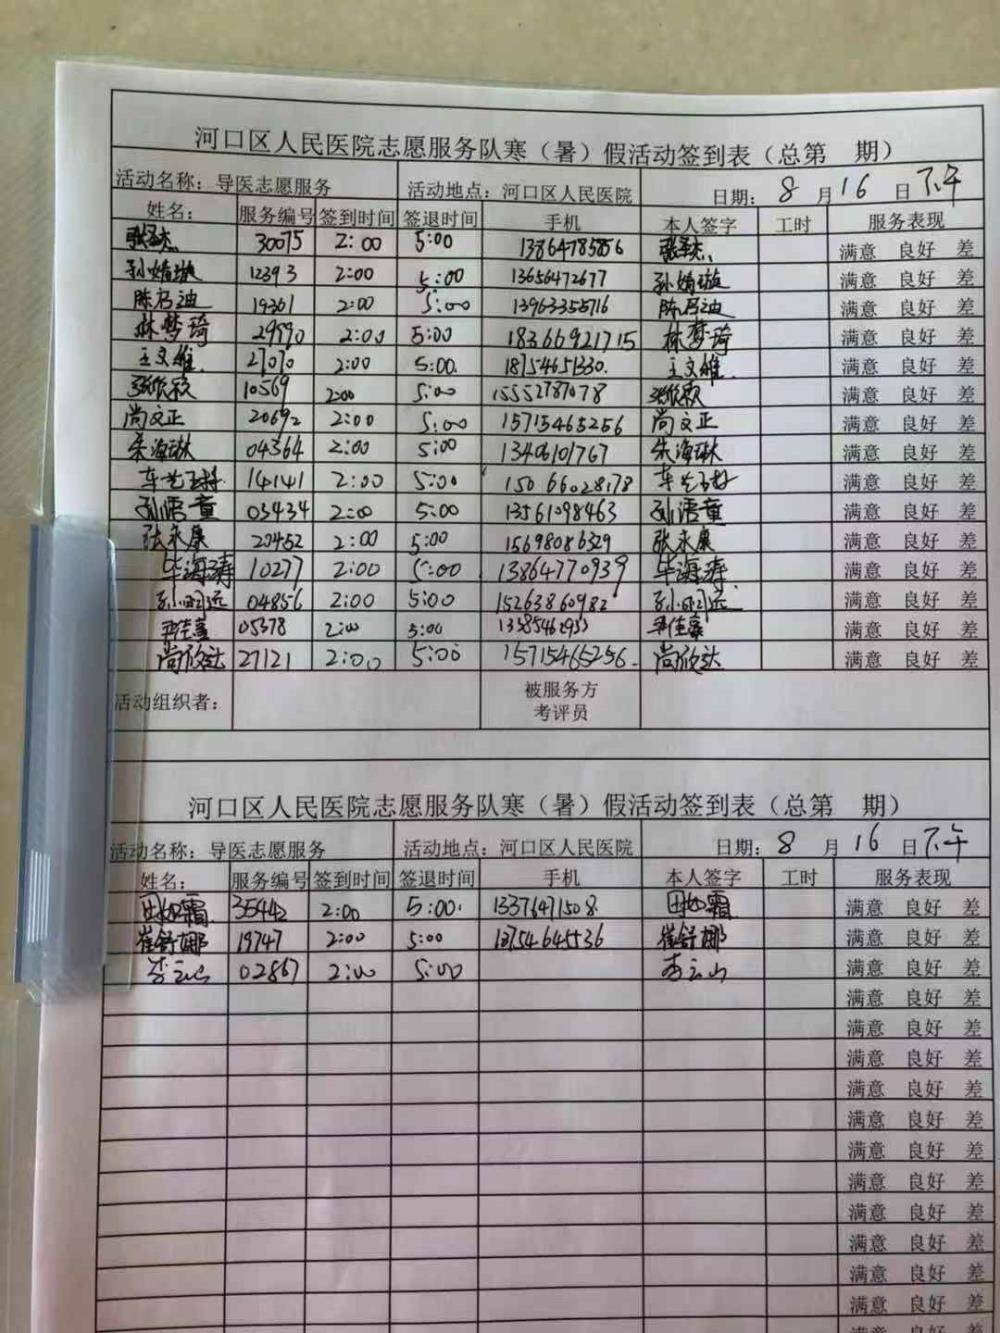 河口区人民医院志愿服务队寒（暑）假活动签到表（总第 期）
活动名称：导医志愿服务 活动地点：河口区人民医院 日期：8 月 16 日 下午
姓名： 服务编号 签到时间 签退时间 手机 本人签字 工时 服务表现
30075 2:00 5:00 13864785856 满意 良好 差
孙婧璇 12393 2:00 5:00 13656472677 孙婧璇 满意 良好 差
19301 2:00 5:00 13963355716 满意 良好 差
林梦琦 29990 2:00 5:00 18366921715 林梦琦 满意 良好 差
王文雄 27070 2:00 5:00 18754651330 王文雄 满意 良好 差
10569 2:00 5:00 15552787078 满意 良好 差
尚文正 20692 2:00 5:00 15715465256 尚文正 满意 良好 差
朱海琳 04364 2:00 5:00 13406101767 朱海琳 满意 良好 差
14141 2:00 5:00 15066028178 满意 良好 差
孙语童 03434 2:00 5:00 13561098463 孙语童 满意 良好 差
张永康 20452 2:00 5:00 15698086329 张永康 满意 良好 差
毕海涛 10277 2:00 5:00 13864770939 毕海涛 满意 良好 差
04856 2:00 5:00 15263860982 满意 良好 差
05378 2:00 5:00 满意 良好 差
尚欣达 27121 2:00 5:00 15715465256 尚欣达 满意 良好 差
活动组织者： 被服务方
考评员
河口区人民医院志愿服务队寒（暑）假活动签到表（总第 期）
活动名称：导医志愿服务 活动地点：河口区人民医院 日期：8 月 16 日 下午
姓名： 服务编号 签到时间 签退时间 手机 本人签字 工时 服务表现
田如霜 35442 2:00 5:00 13376471508 田如霜 满意 良好 差
崔舒娜 19747 2:00 5:00 18754645536 崔舒娜 满意 良好 差
李云山 02867 2:00 5:00 李云山 满意 良好 差
满意 良好 差
满意 良好 差
满意 良好 差
满意 良好 差
满意 良好 差
满意 良好 差
满意 良好 差
满意 良好 差
满意 良好 差
满意 良好 差
满意 良好 差
满意 良好 差